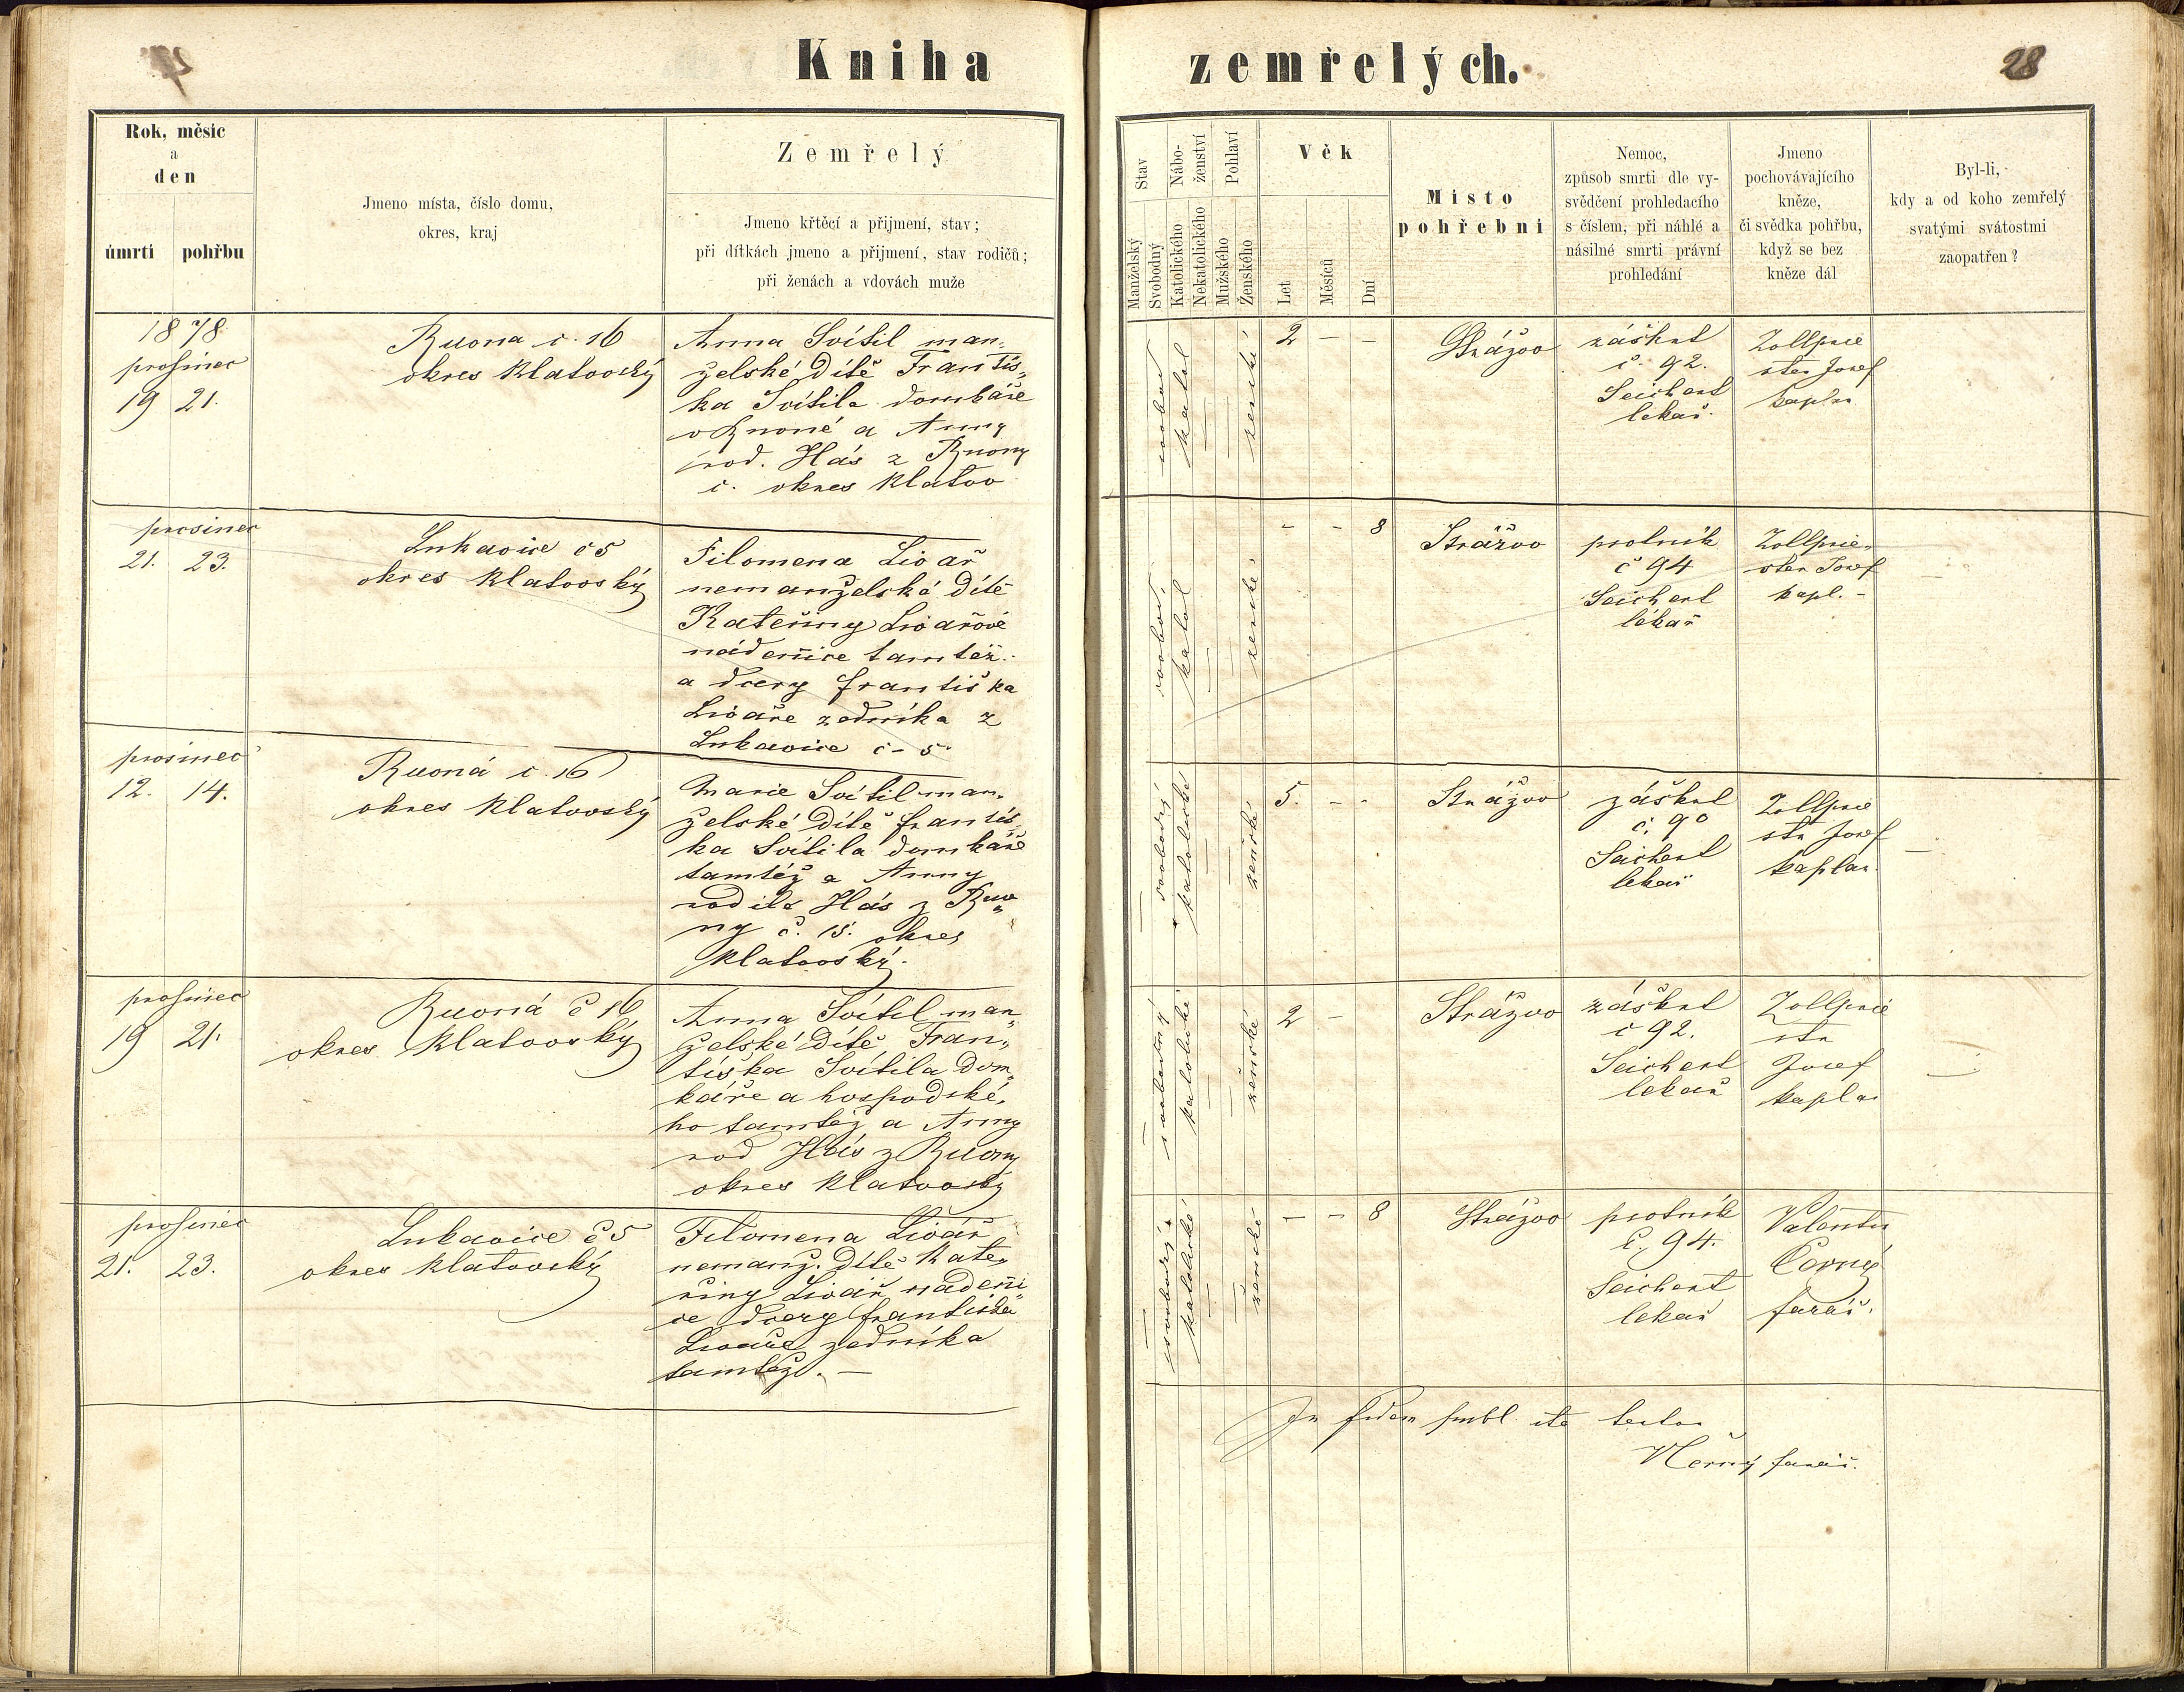 Kniha zemřelých.
28
Rok, měsíc
a
den
úmrtí pohřbu
Jmeno místa, číslo domu,
okres, kraj
Zemřelý
Jmeno křtěcí a přijmení, stav;
při dítkách jmeno a přijmení, stav rodičů;
při ženách a vdovách muže
Stav
Manželský
Svobodný
Nábo-
ženství
Katolického
Nekatolického
Pohlaví
Mužského
Ženského
Věk
Let
Měsíců
Dní
Místo
pohřební
Nemoc,
způsob smrti dle vy-
svědčení prohledacího
s číslem, při náhlé a
násilné smrti právní
prohledání
Jmeno
pochovávajícího
kněze,
či svědka pohřbu,
když se bez
kněze dál
Byl-li,
kdy a od koho zemřelý
svatými svátostmi
zaopatřen?
1878
prosinec
19 21.
Ruona č. 16
okres Klatovský
Anna Svítil man-
želské dítě Františ-
ka Svítila domkáře
v Ruoné a Anny
rod. Hás z Ruony
č. okres Klatov
svobod
katol
ženské
2 - -
Strážov
záškrt
č. 92.
Seichert
lékař.
Zollprie
ster Josef
kaplan
prosinec
21. 23.
Lukavice č 5
okres Klatovský
Filomena Livař
nemanželské dítě
Kateřiny Livařové
nádenice tamtéž.
a dcery Františka
Livaře zedníka z
Lukavice č - 5
svobod.
katol
ženské
- - 8
Strážov
psotník
č 94
Seichert
lékař
Zollprie-
ster Josef
kapl. -
prosinec
12. 14.
Ruoná č. 16
okres Klatovský
Marie Svítil man-
želské dítě Františ-
ka Svítila domkáře
tamtéž a Anny
rodilé Hás z Ruo-
ny č. 15. okres
Klatovský.
svobodný
katolické
ženské
5. - -
Strážov
záškrt
č. 90
Seichert
lékař
Zollprie
ster Josef
kaplan.
prosinec
19 21.
Ruoná č 16
okres Klatovský
Anna Svítil man-
želské dítě Fran-
tiška Svítila dom-
káře a hospodské-
ho tamtéž a Anny
rod Hás z Ruony
okres Klatovský
svobodný
katolické
ženské
2 -
Strážov
záškrt
č 92.
Seichert
lékař
Zollprie
ster
Josef
kaplan
prosinec
21. 23.
Lukavice č 5
okres Klatovský
Filomena Livář
nemanž. dítě Kate-
řiny Livář nádeni-
ce dcery Františka
Livaře zedníka
tamtéž. -
svobodný
katolické
ženské
- - 8
Strážov
psotník
č. 94.
Seichert
lékař
Valentin
Černý
farář.
In fidem publ. ita testor
VČerný farář.